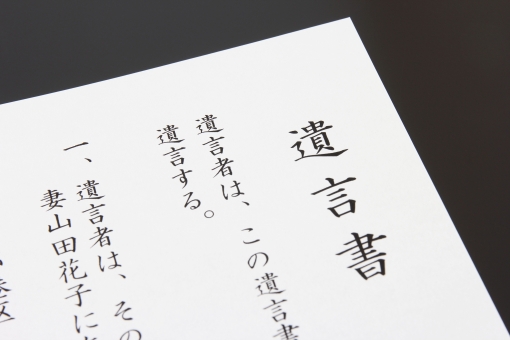 遺言書
遺言者は、この遺言書
遺言する。
一、遺言者は、その
妻山田花子に
港区